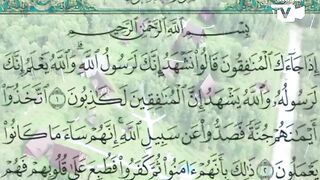 TV
بِسْمِ اللَّهِ الرَّحْمَٰنِ الرَّحِيمِ
إِذَا جَاءَكَ الْمُنَافِقُونَ قَالُوا نَشْهَدُ إِنَّكَ لَرَسُولُ اللَّهِ وَاللَّهُ يَعْلَمُ إِنَّكَ
لَرَسُولُهُ وَاللَّهُ يَشْهَدُ إِنَّ الْمُنَافِقِينَ لَكَاذِبُونَ ١ اتَّخَذُوا
أَيْمَانَهُمْ جُنَّةً فَصَدُّوا عَنْ سَبِيلِ اللَّهِ إِنَّهُمْ سَاءَ مَا كَانُوا
يَعْمَلُونَ ٢ ذَٰلِكَ بِأَنَّهُمْ ءَامَنُوا ثُمَّ كَفَرُوا فَطُبِعَ عَلَىٰ قُلُوبِهِمْ فَهُمْ